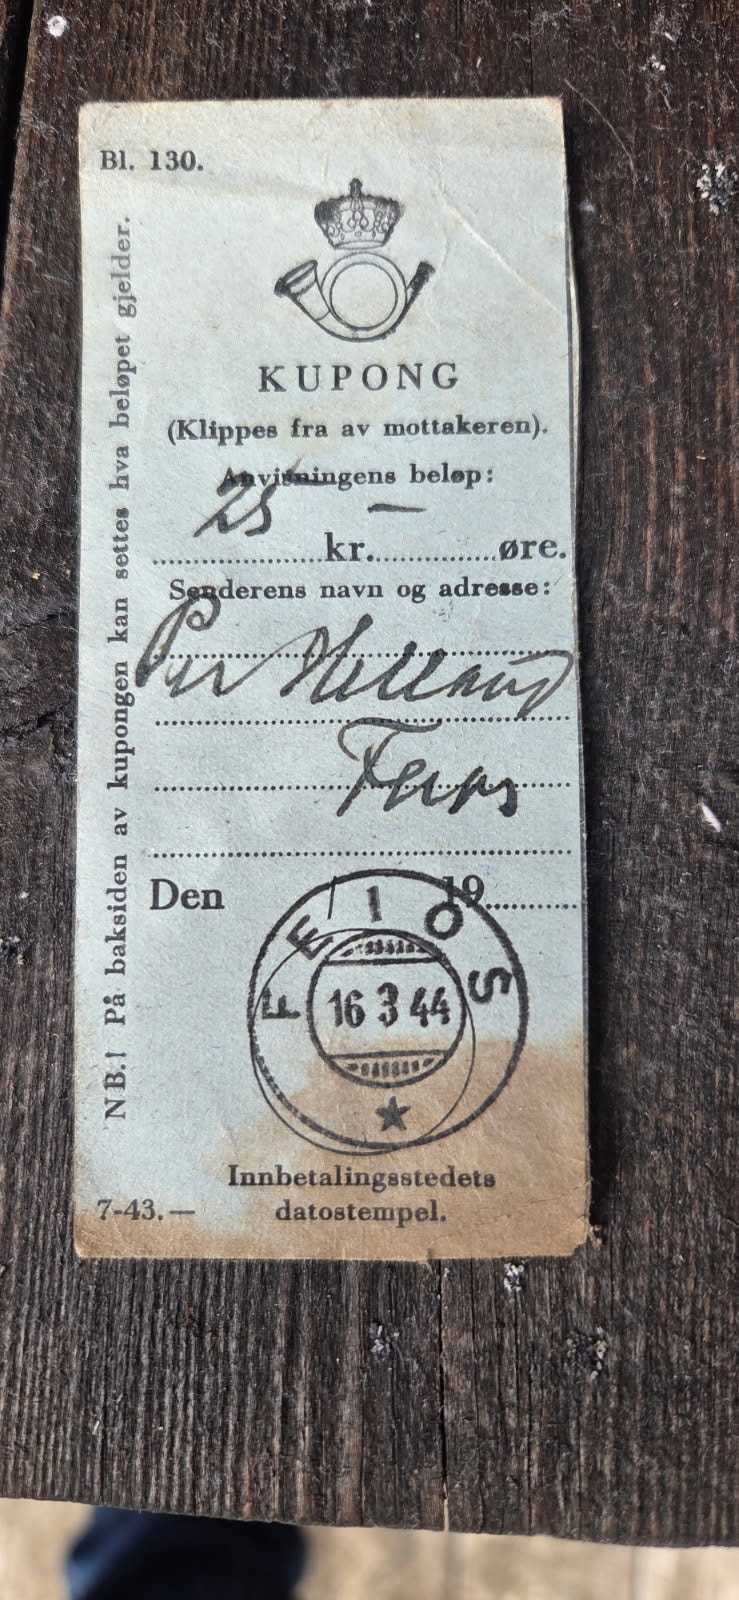 Bl. 130.
KUPONG
(Klippes fra av mottakeren).
Anvisningens beløp:
25 —
kr. øre.
Senderens navn og adresse:
Per Helland
Feios
Den 19
FEIOS
16 3 44
Innbetalingsstedets
datostempel.
7-43.—
NB.! På baksiden av kupongen kan settes hva beløpet gjelder.